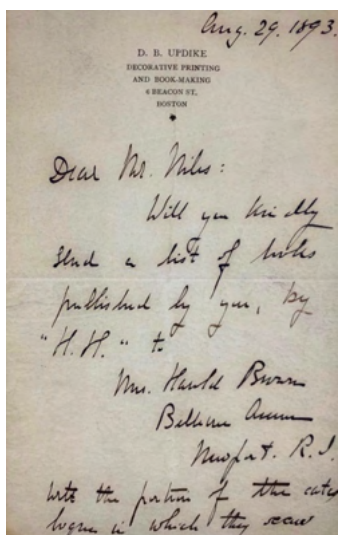 Aug. 29. 1893.
D. B. UPDIKE
DECORATIVE PRINTING
AND BOOK-MAKING
6 BEACON ST,
BOSTON
Dear Mr. Niles:
Will you kindly
send a list of books
published by you, by
"H. H." to
Mrs. Harold Brown
Bellevue Avenue
Newport. R. I.
with the portion of the cata
logue in which they occur